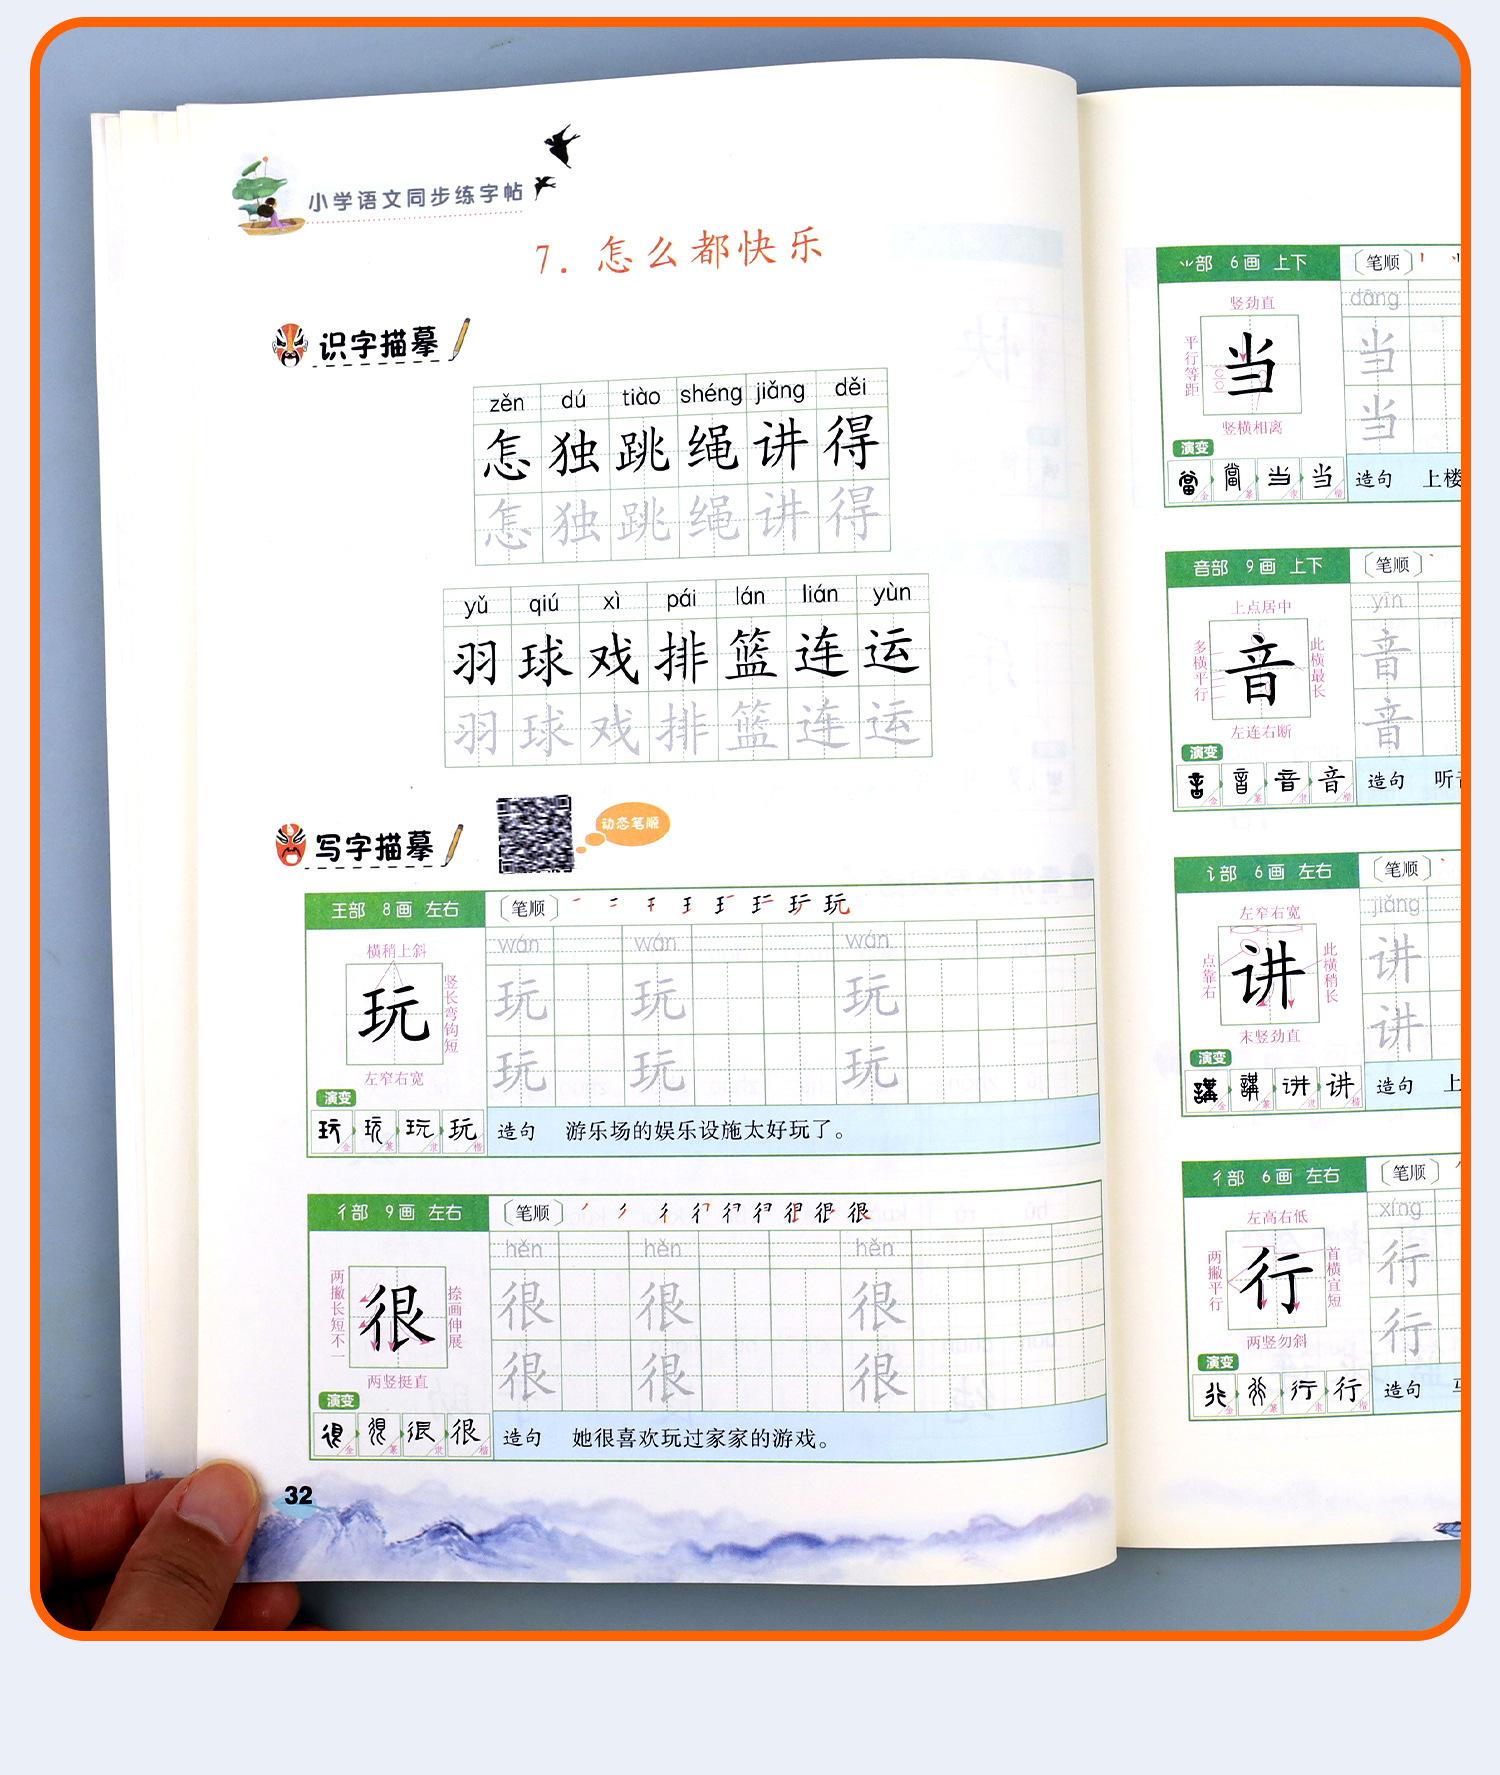 小学语文同步练字帖
7. 怎么都快乐
识字描摹
zěn dú tiào shéng jiǎng děi
怎 独 跳 绳 讲 得
怎 独 跳 绳 讲 得
yǔ qiú xì pái lán lián yùn
羽 球 戏 排 篮 连 运
羽 球 戏 排 篮 连 运
写字描摹
动态笔顺
王部 8画 左右
〔笔顺〕
横稍上斜
玩
竖长弯钩短
左窄右宽
演变
玩 玩 玩 玩
金 篆 隶 楷
wán wán wán
玩 玩 玩
玩 玩 玩
造句 游乐场的娱乐设施太好玩了。
彳部 9画 左右
〔笔顺〕
两撇长短不一
很
捺画伸展
两竖挺直
演变
很 很 很 很
金 篆 隶 楷
hěn hěn hěn
很 很 很
很 很 很
造句 她很喜欢玩过家家的游戏。
32
⺌部 6画 上下
〔笔顺〕
竖劲直
平行等距
当
竖横相离
演变
當 當 当 当
金 篆 隶 楷
dāng
当
当
造句 上楼
音部 9画 上下
〔笔顺〕
上点居中
多横平行
音
此横最长
左连右断
演变
音 音 音 音
金 篆 隶 楷
yīn
音
音
造句 听音
讠部 6画 左右
〔笔顺〕
左窄右宽
点靠右
讲
此横稍长
末竖劲直
演变
講 講 讲 讲
金 篆 隶 楷
jiǎng
讲
讲
造句 上
彳部 6画 左右
〔笔顺〕
左高右低
两撇平行
行
首横宜短
两竖勿斜
演变
行 行 行 行
金 篆 隶 楷
xíng
行
行
造句